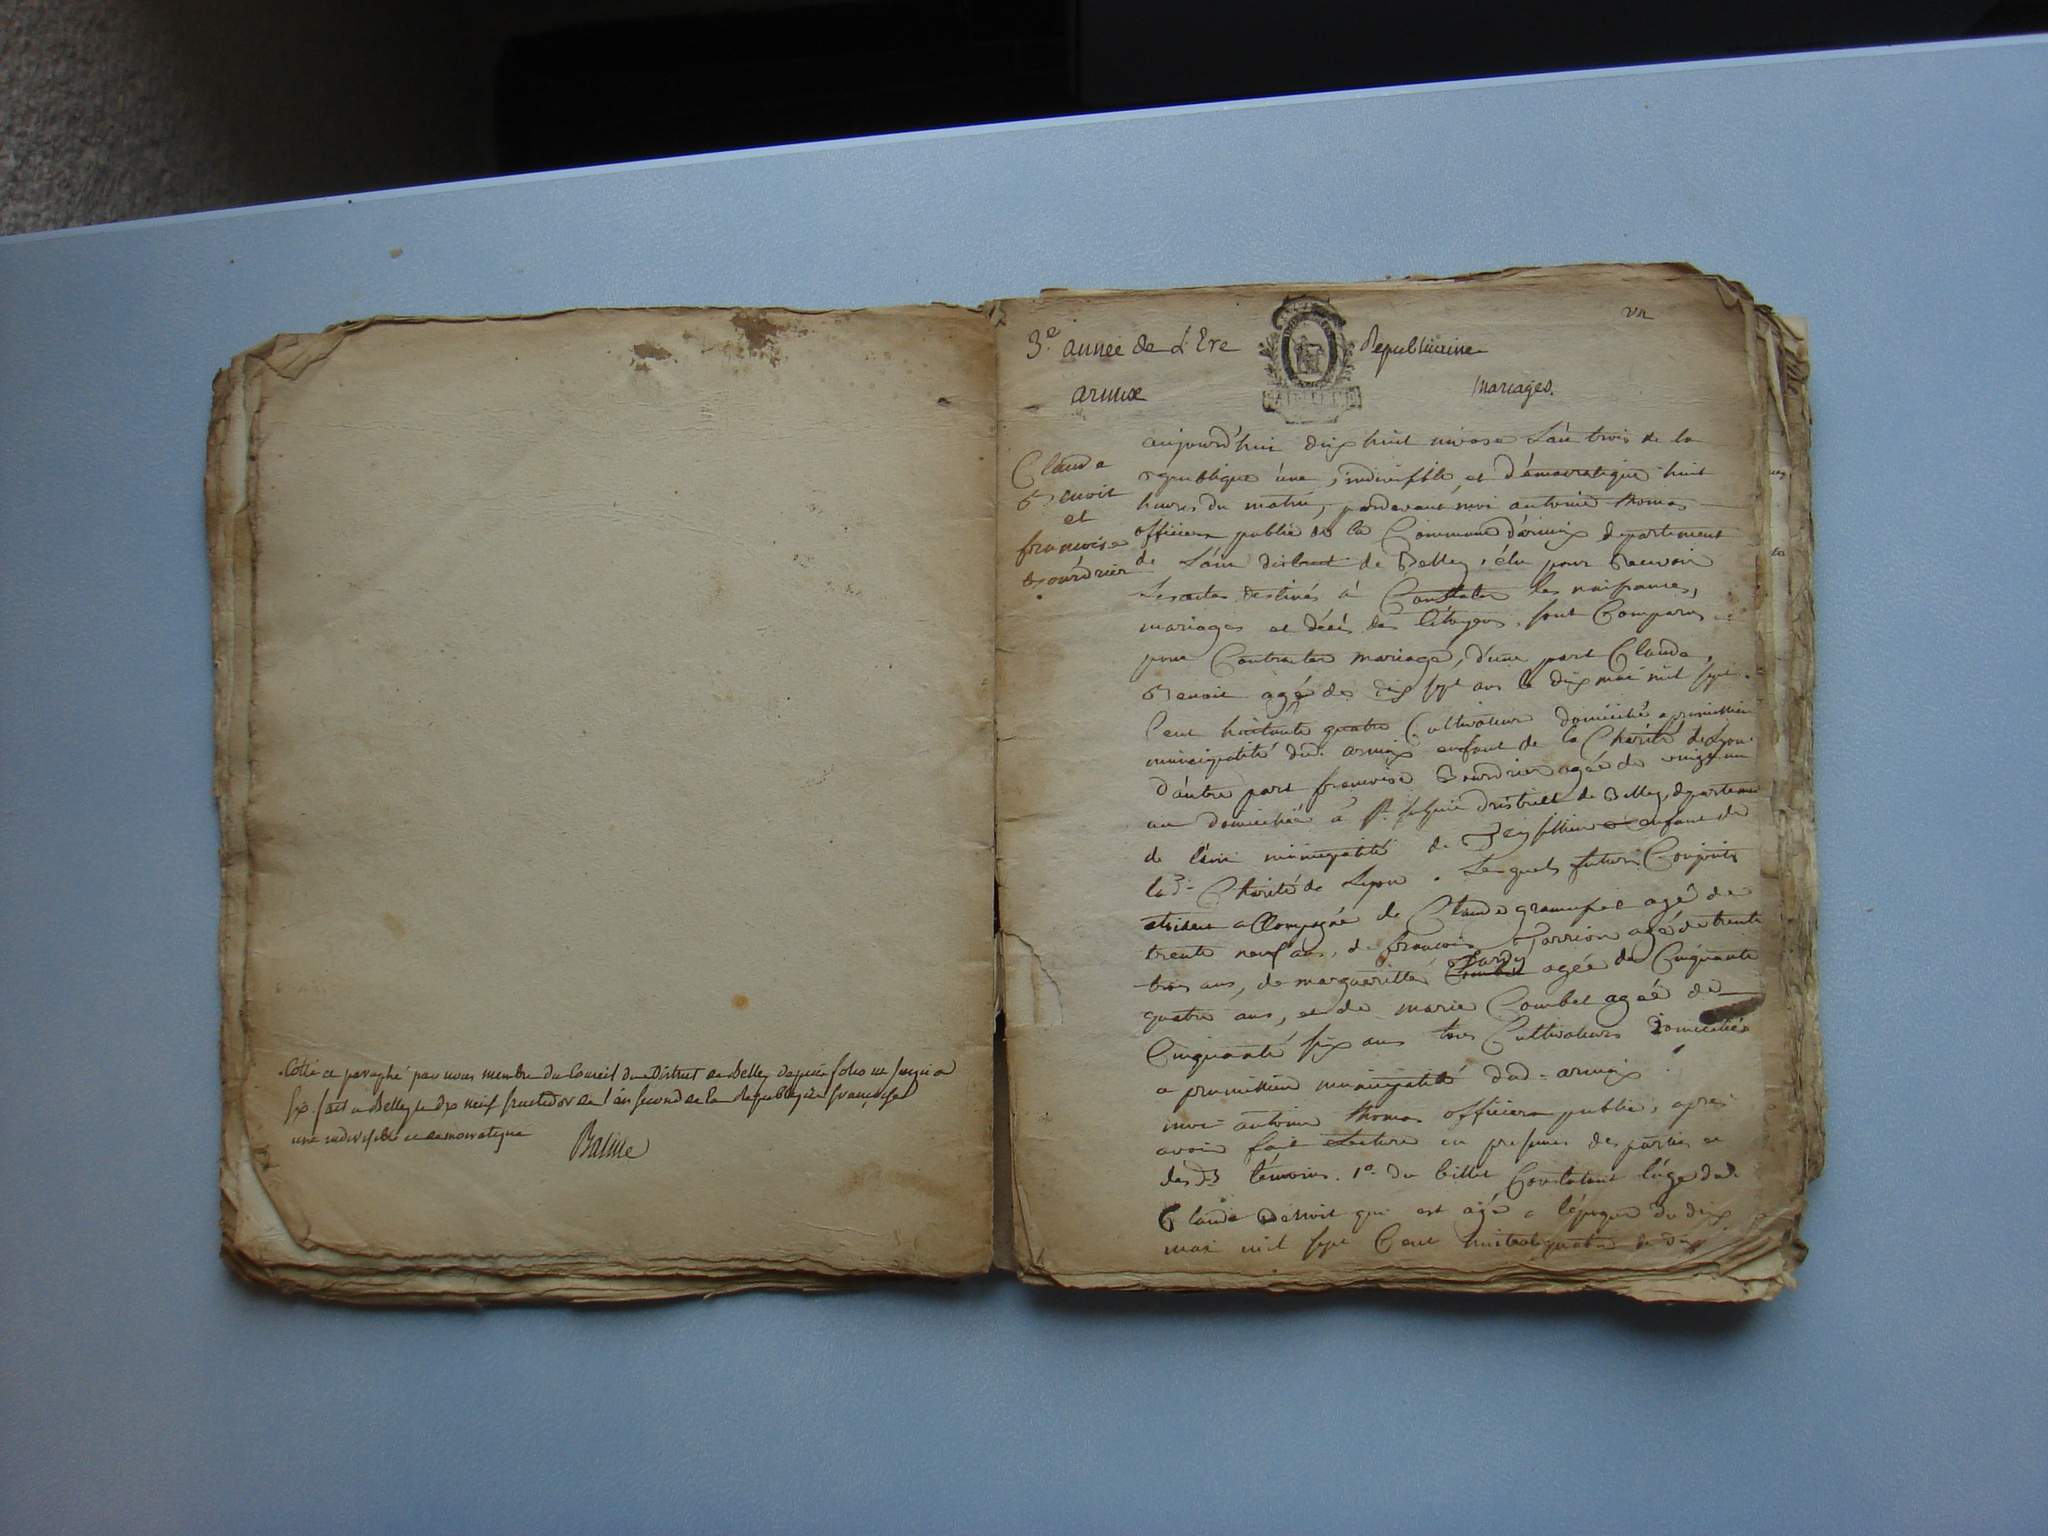 Cotté et paraphé par nous membre du Conseil du District de Belley depuis folio un jusqu'a
six fait a Belley le dix neuf fructidor de l'an second de la Republique française
une indivisible et democratique
Balme
un
3.e année de L'Ere Republicaine
armix mariages.
Claude
Benoit
et
françoise
Bourdrier
aujourd'hui dix huit nivose L'an trois de la
republique une, indivisible, et démocratique huit
heures du matin, pardevant moi antoine thomas
officier public de la Commune d'armix departement
de L'ain district de Belley, élu pour Recevoir
Les actes destinés à Constater les naissances,
mariages et décès des Citoyens, sont Comparus
pour Contracter mariage, d'une part Claude
Benoit agé de dix sept ans le dix mai mil sept
Cent huitante quatre Cultivateur domicilié a premillieu
municipalité dud. armix enfant de la Charité de Lyon
d'autre part francoise Bourdrier agée de vingt un
an domiciliée à St. district de Belley, departement
de l'ain municipalité de enfant de
la d. Charité de Lyon. Lesquels futurs Conjoints
etoient accompagné de Claude agé de
trente neuf ans, de françois agé de trente
trois ans, de margueritte agée de Cinquante
quatre ans, et de marie Combet agée de
Cinquante six ans tous Cultivateurs domiciliés
a premillieu municipalité dud. armix.
moi antoine thomas officier public, apres
avoir fait Lecture en presence des parties et
des d. témoins. 1.o du billet Constatant l'age dud.
Claude Benoit qui est agé a l'époque du dix
mai mil sept Cent huitante quatre de dix